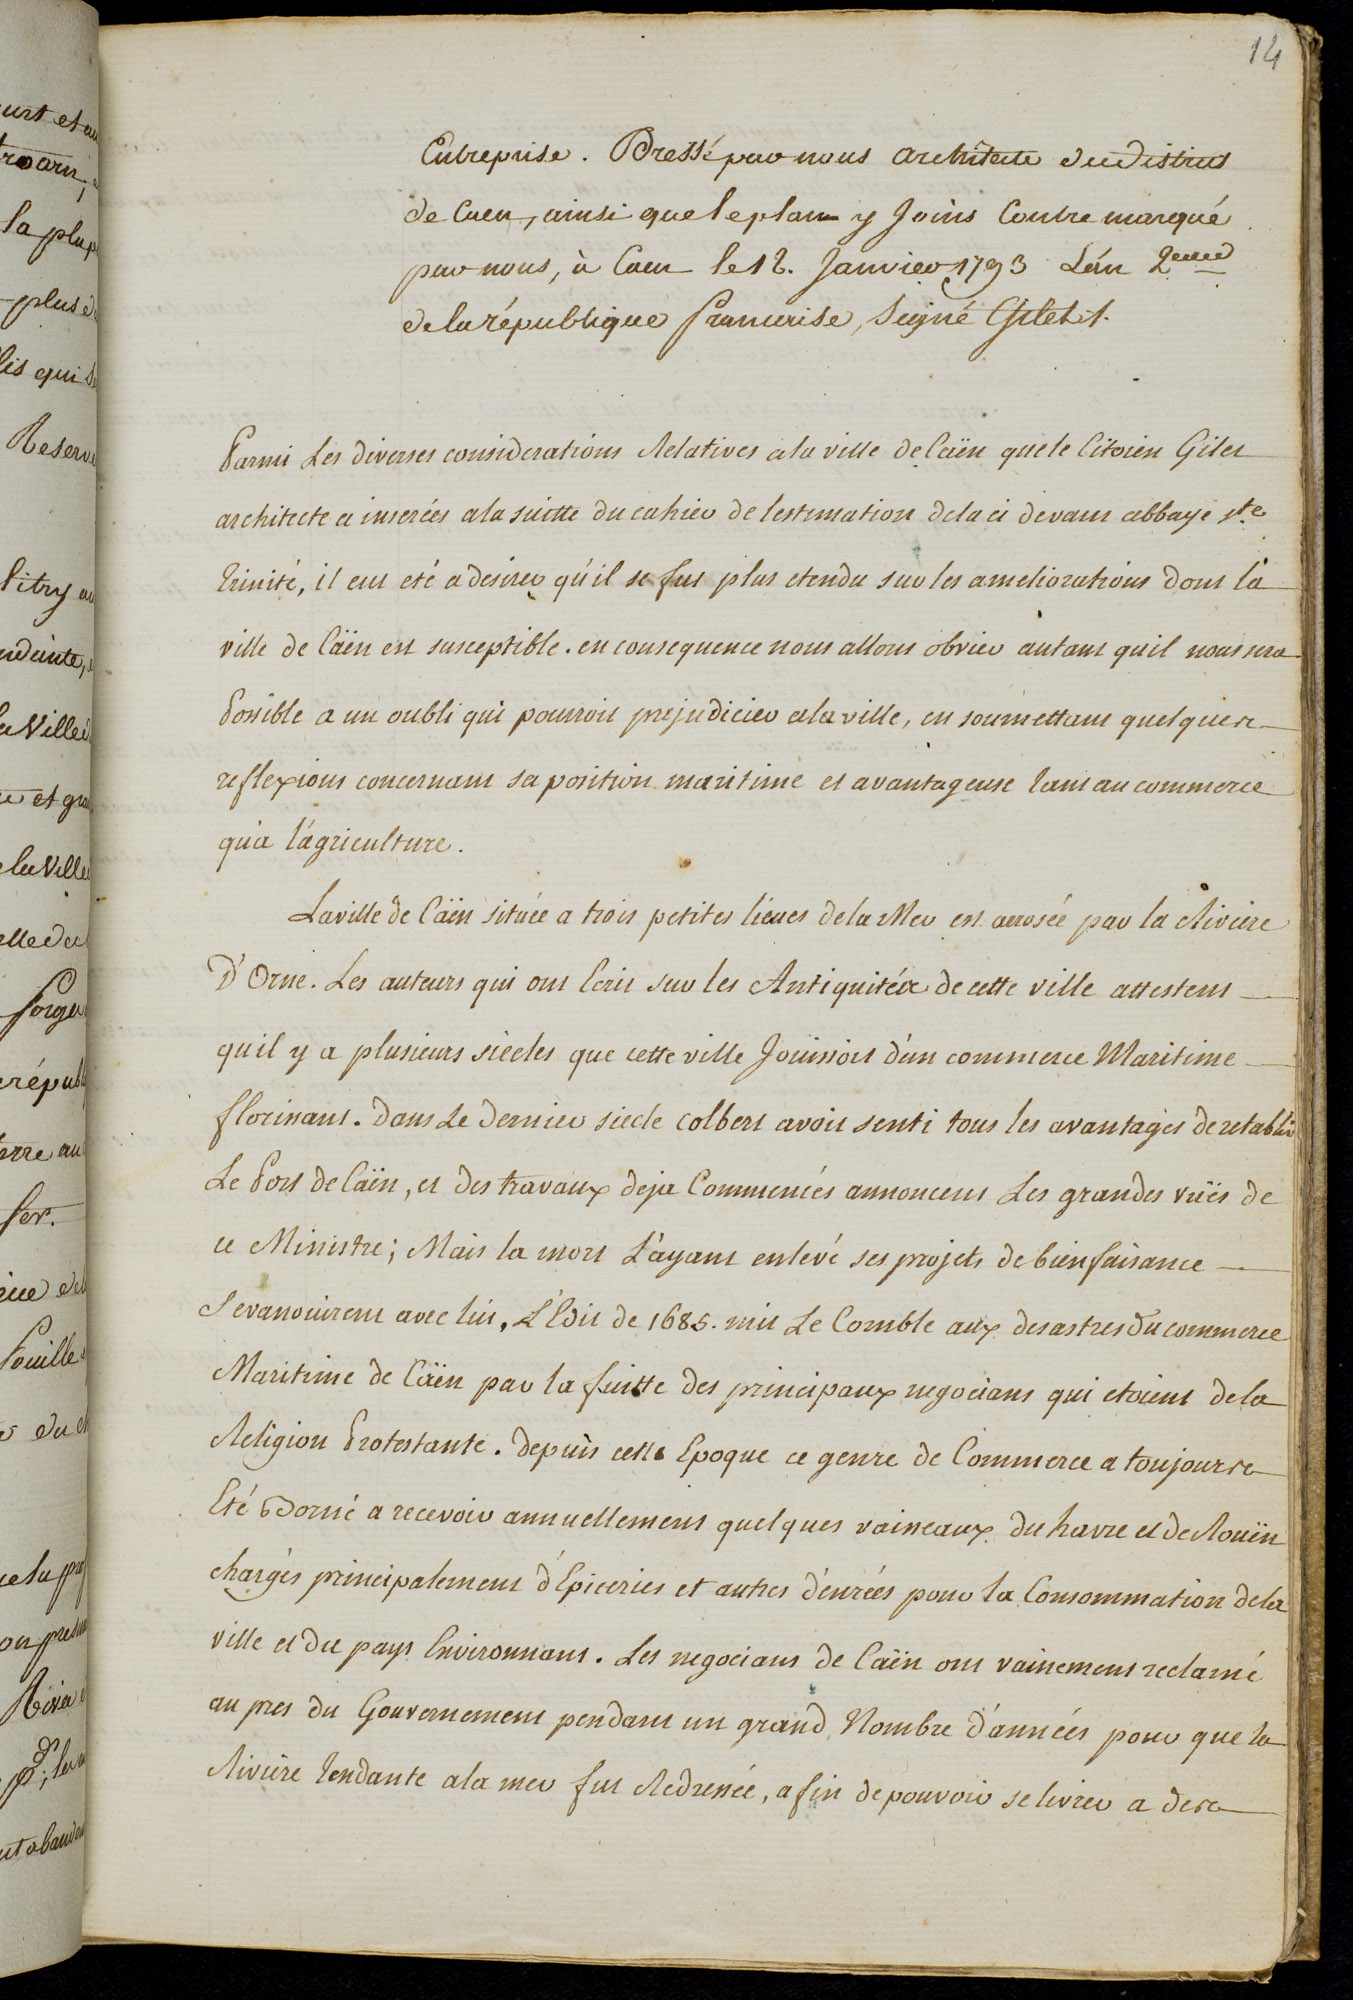 14
Entreprise. Dressé par nous Architecte du District
de Caen, ainsi que le plan y Joint Contre marqué
par nous, à Caen le 12. Janvier 1793 L'an 2eme
de la république francaise, Signé Gilet ./.
Parmi Les diverses considerations Relatives a la ville de Caën que le Citoien Gilet
architecte a inserées a la suitte du cahier de lestimation dela ci devant abbaye ste
trinité, il eut eté a desirer qu'il se fut plus etendu sur les ameliorations dont la
ville de Caën est susceptible. en consequence nous allons obvier autant quil nous sera
Possible a un oubli qui pourroit prejudicier ala ville, en soumettant quelques
reflexions concernant sa position maritime et avantageuse tant au commerce
qu'a l'agriculture.
La ville de Caën située a trois petites lieues dela Mer est arrosée par la Riviere
D'Orne. Les auteurs qui ont Ecrit sur les Antiquités de cette ville attestent
quil y a plusieurs siècles que cette ville Jouissoit d'un commerce Maritime
florissant. dans Le dernier siecle colbert avoit senti tous les avantages de retablir
Le Port de Caën, et des travaux deja Commencés annoncent Les grandes vuës de
ce Ministre; Mais la mort L'ayant enlevé ses projets de bienfaisance
S'evanouirent avec lui, L'Edit de 1685. mit Le Comble aux desastres du commerce
Maritime de Caën par la fuitte des principaux negocians qui etoient dela
Religion Protestante. depuis cette Epoque ce genre de Commerce a toujours
Eté Borné a recevoir annuellement quelques vaisseaux du havre et de Rouën
chargés principalement d'Epiceries et autres denrées pour la Consommation dela
ville et du pays Environnant. Les negocians de Caën ont vainement reclamé
au pres du Gouvernement pendant un grand Nombre d'années pour que la
Riviere tendante ala mer fut Redressée, afin de pouvoir se livrer a des